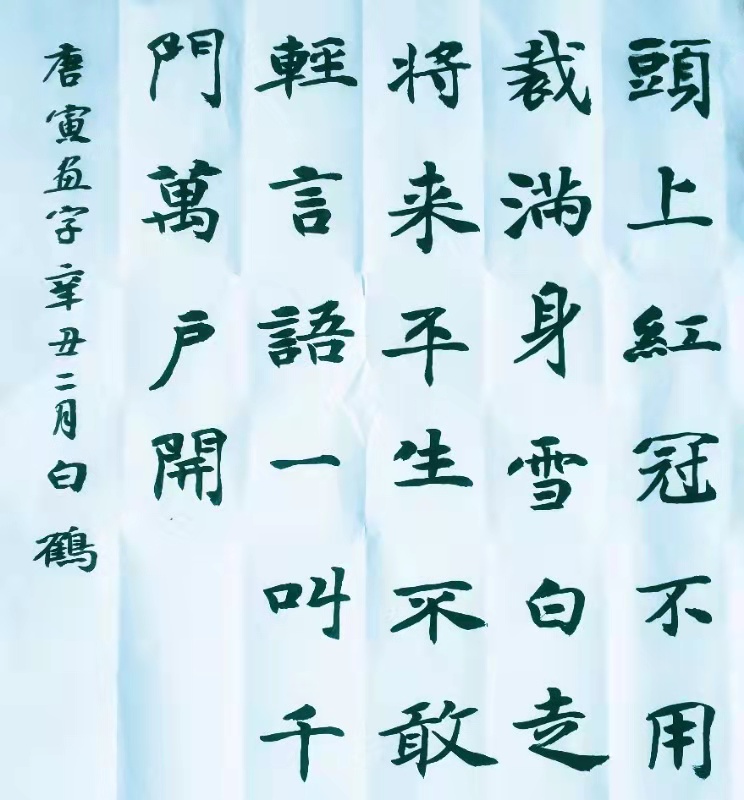 頭上紅冠不用
裁滿身雪白走
将来平生不敢
輕言語一叫千
門萬户開
唐寅画字辛丑二月白鶴